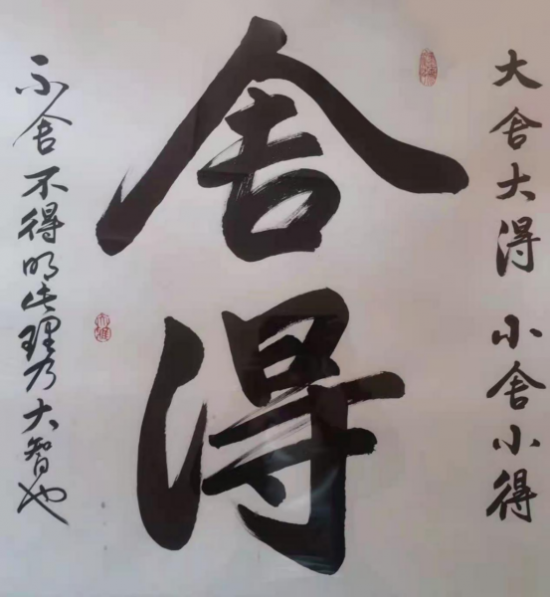 大舍大得 小舍小得
舍得
不舍不得明此理乃大智也